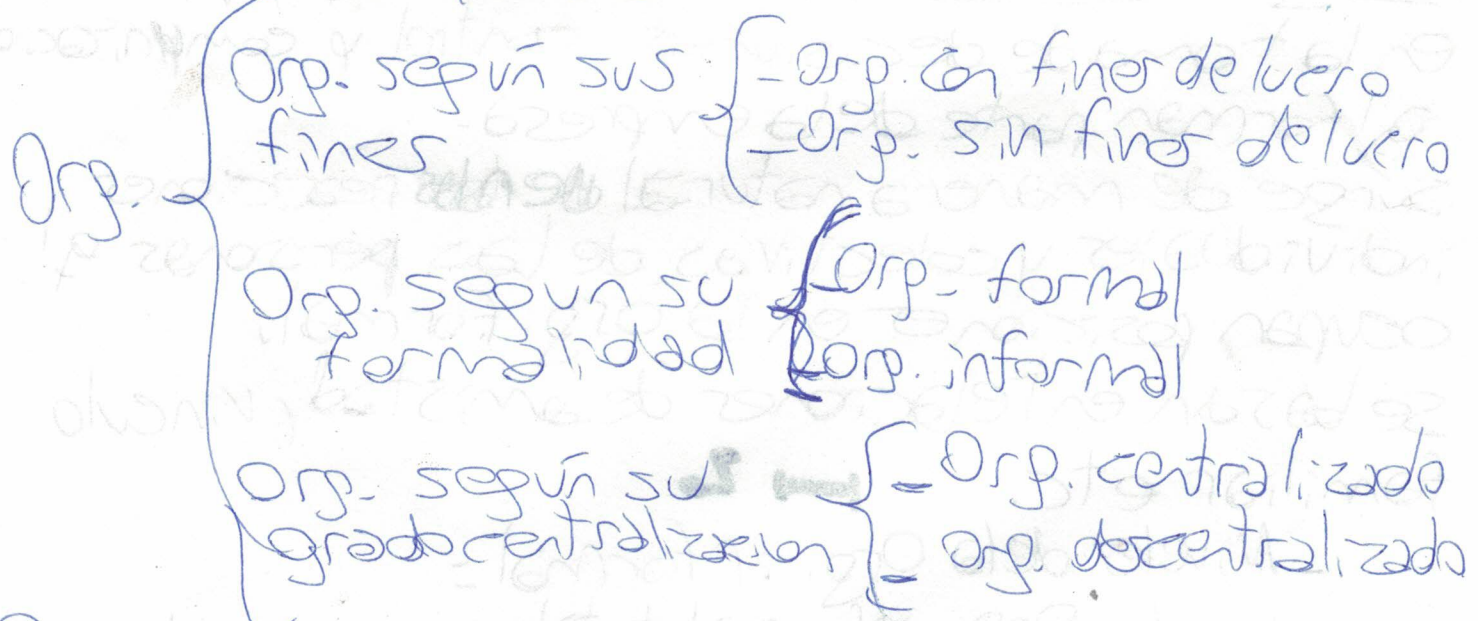 Org.
Org. según sus
fines
- Org. con fines de lucro
- Org. sin fines de lucro
Org. segun su
formalidad
- Org. formal
- Org. informal
Org. según su
grado centralización
- Org. centralizado
- org. descentralizado